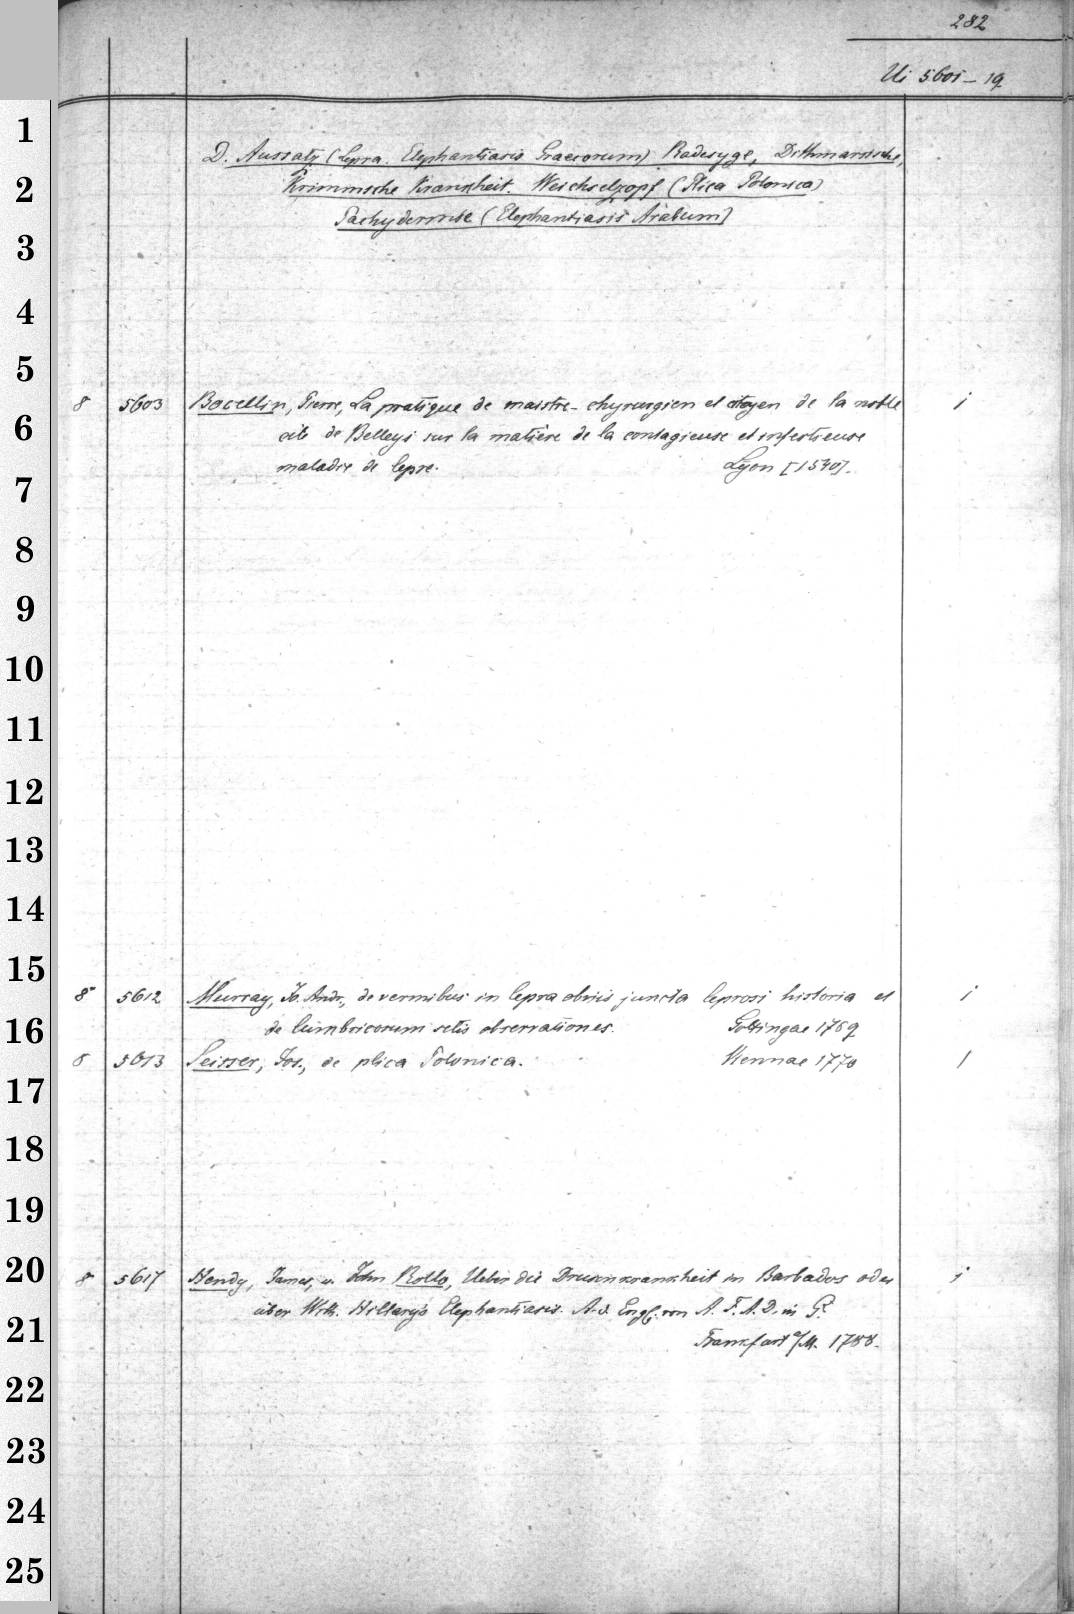 282
Ui 5601-19
D. Aussatz (Lepra. Elephantiasis Graecorum) Radesyge, Dithmarsische,
Krimmsche Krankheit. Weichselzopf (Plica Polonica)
Pachydermie (Elephantiasis Arabum)
8 5603 Bocellin, Pierre, La pratique de maistre chyrurgien et citoyen de la noble 1
cité de Belleys sur la matière de la contagieuse et infectieuse
maladie de lepre. Lyon [1540].
8° 5612 Murray, Jo. Andr., de vermibus in lepra obviis juncta leprosi historia et 1
de lumbricorum setis observationes. Gottingae 1769
8 5613 Seisser, Jos., de plica Polonica. Viennae 1770 1
8 5617 Hendy, James, u. John Rollo, Ueber die Drüsenkrankheit in Barbados oder 1
über Wilh. Hillary's Elephantiasis. A. d. Engl. von A. F. A. D. in G.
Frankfurt a/M. 1788.
1
2
3
4
5
6
7
8
9
10
11
12
13
14
15
16
17
18
19
20
21
22
23
24
25